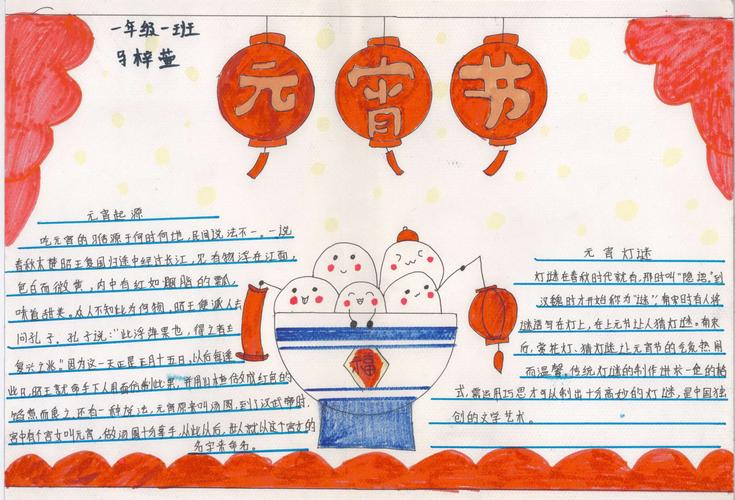 一年级一班
马梓萱
元宵节
元宵起源
吃元宵的习俗源于何时何地,民间说法不一。一说
春秋末楚昭王复国归途中经过长江,见有物浮在江面,
色白而微黄,内中有红如胭脂的瓤,
味道甜美。众人不知此为何物,昭王便派人去
问孔子。孔子说:“此浮萍果也,得之者主
复兴之兆。”因为这一天正是正月十五日,以后每逢
此日,昭王就命手下人用面仿制此果,并用山楂做成红色的
馅煮而食之。还有一种说法,元宵原来叫汤圆,到了汉武帝时,
宫中有个宫女叫元宵,做汤圆十分拿手,从此以后,世人就以这个宫女的
名字来命名。
福
元宵灯谜
灯谜在春秋时代就有,那时叫“隐语”。到
汉魏时才开始称为“谜”,有宋时有人将
谜语写在灯上,在上元节让人猜灯谜。有宋
后,赏花灯、猜灯谜让元宵节的气氛热闹
而温馨。传统灯谜的制作讲求一定的格
式,需运用巧思才可以制出十分高妙的灯谜,是中国独
创的文学艺术。